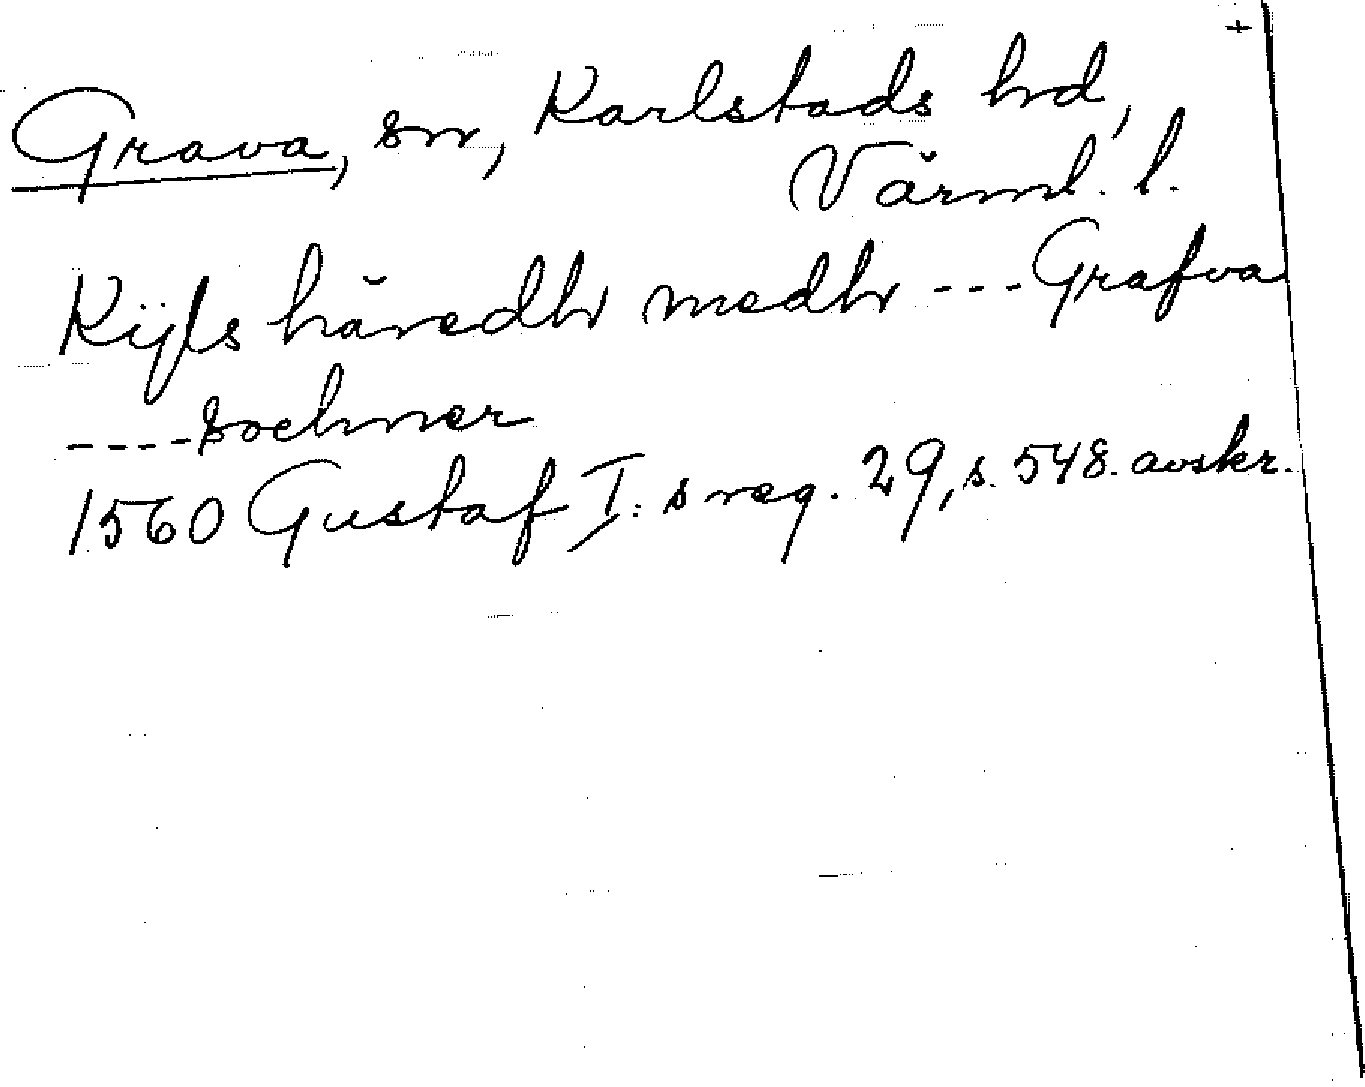 +
Grava, sn, Karlstads hd,
Värml. l.
Kijls häredh medh --- Grafva
---- sochner
1560 Gustaf I:s reg. 29, s. 548. avskr.